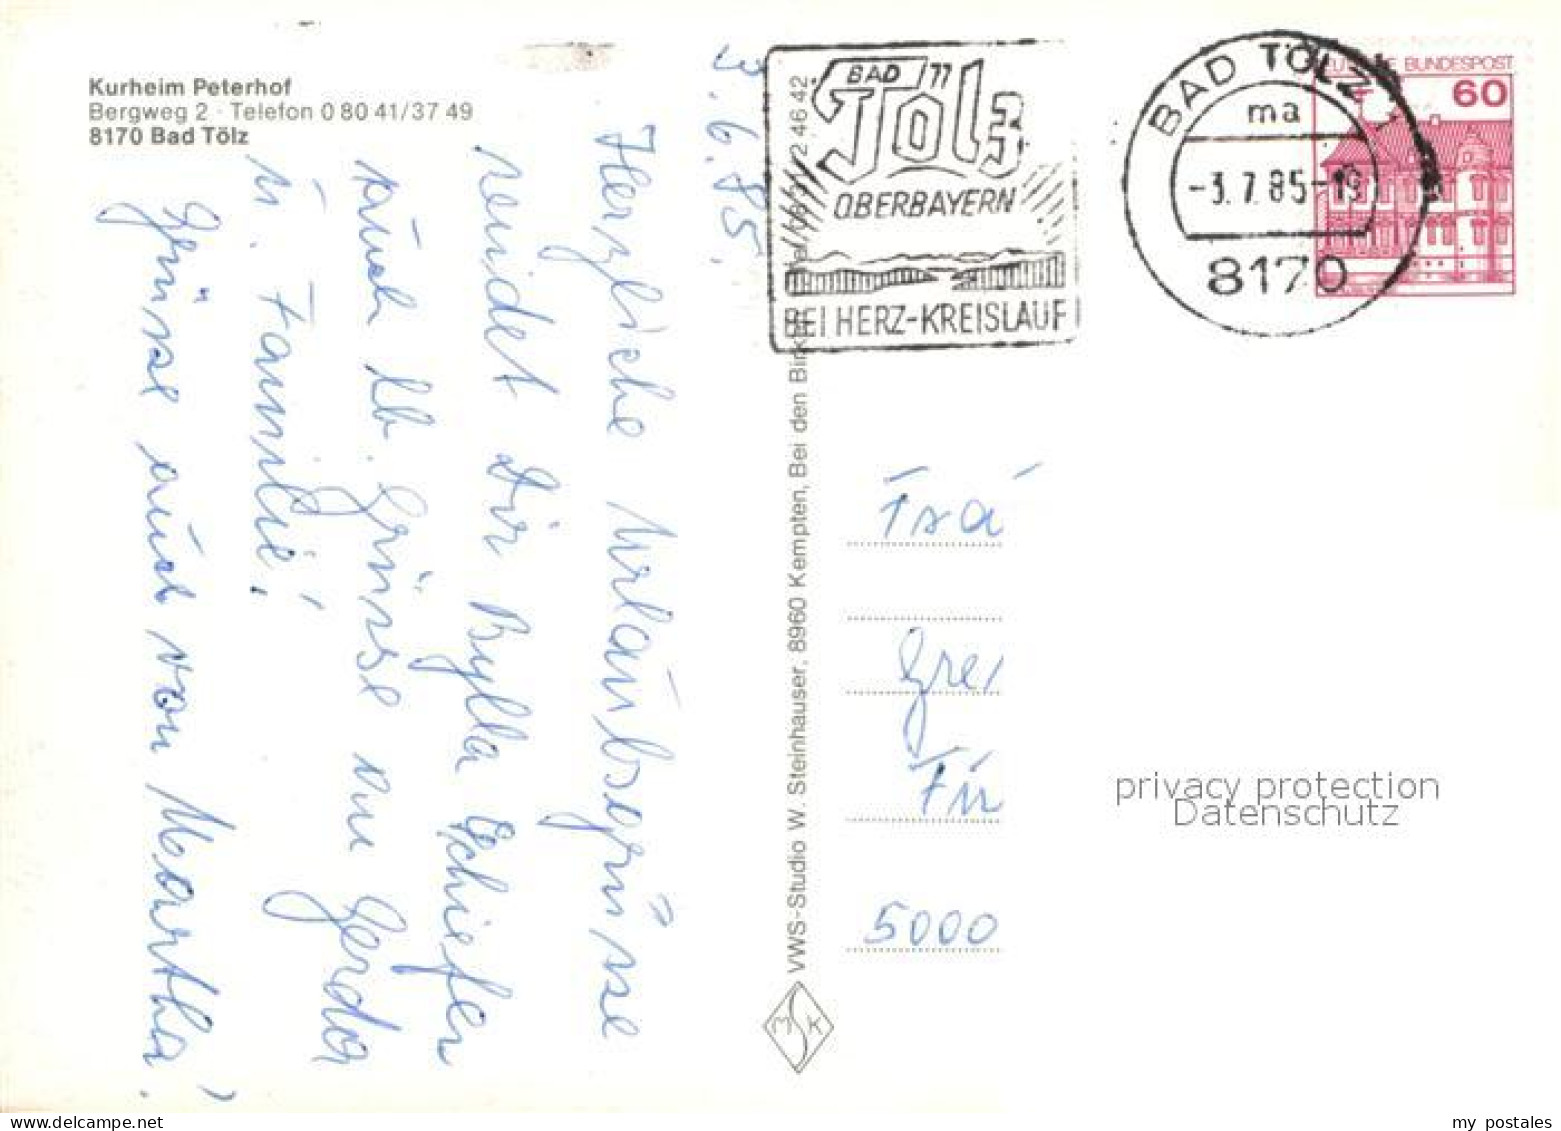 Kurheim Peterhof
Bergweg 2 · Telefon 0 80 41/37 49
8170 Bad Tölz
3.6.85.
Herzliche Urlaubsgrüsse
sendet Dir Bylla Schiefer
auch lb. Grüsse an Gerda
u. Familie!
Grüsse auch von Martha!
VWS-Studio W. Steinhauser, 8960 Kempten, Bei den Birk
2 46 42
BAD Tölz
OBERBAYERN
BEI HERZ-KREISLAUF
BAD TÖLZ 1
ma
-3.7.85-19
8170
BUNDESPOST
60
Frau
Gre
Für
5000
MSK
privacy protection
Datenschutz
my postales